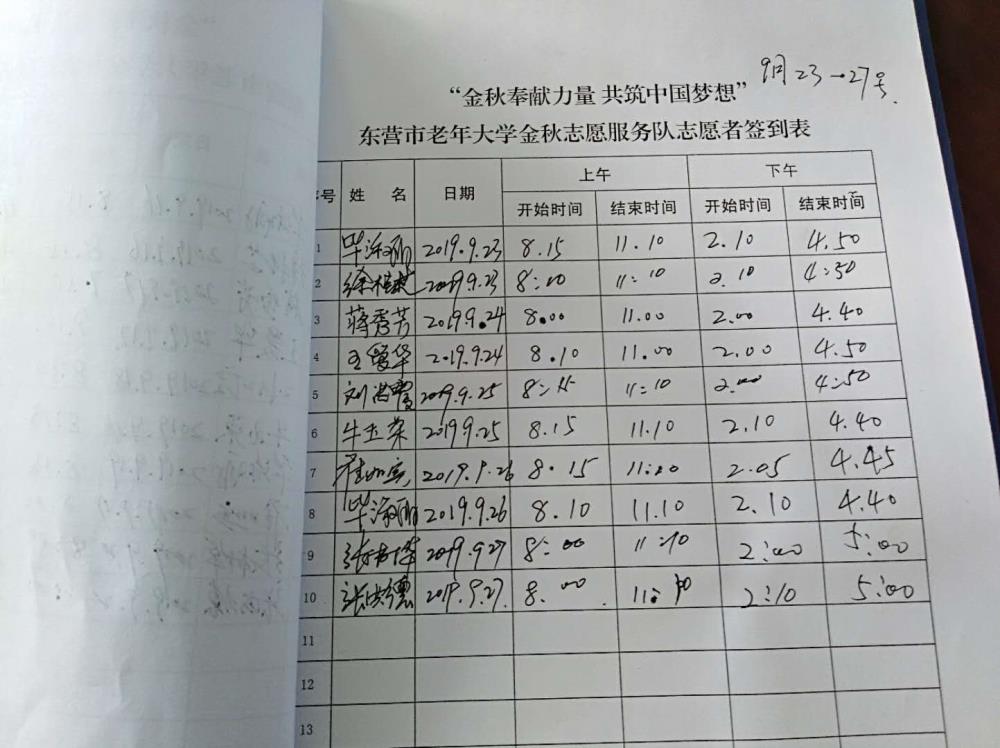 9月23-27号.
“金秋奉献力量 共筑中国梦想”
东营市老年大学金秋志愿服务队志愿者签到表
号 姓 名 日期 上午 下午
开始时间 结束时间 开始时间 结束时间
1 毕 丽 2019.9.23 8.15 11.10 2.10 4.50
2 徐桂 2019.9.23 8:00 11:10 2.10 4:50
3 蒋秀芳 2019.9.24 8.00 11.00 2.00 4.40
4 王爱华 2019.9.24 8.10 11.00 2.00 4.50
5 刘洪霞 2019.9.25 8:15 11:10 2:00 4:50
6 牛玉荣 2019 9.25 8.15 11.10 2.10 4.40
7 2019.9.26 8.15 11:00 2.05 4.45
8 毕 丽 2019.9.26 8.10 11.10 2.10 4.40
9 张 2019.9.27 8:00 11:10 2:00 5:00
10 张洪德 2019.9.27. 8.00 11:10 2:10 5:00
11
12
13